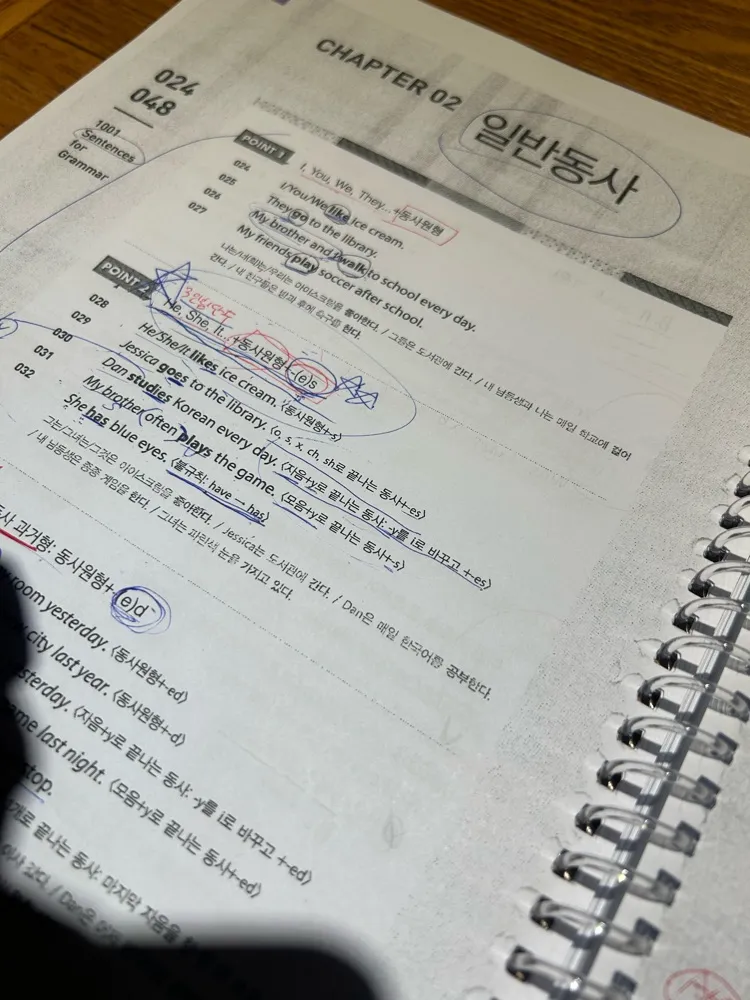 CHAPTER 02
일반동사
024
048
1001
Sentences
for
Grammar
POINT 1
I, You, We, They... +동사원형
024 I/You/We like ice cream.
025 They go to the library.
026 My brother and I walk to school every day.
027 My friends play soccer after school.
나는/너(희)는/우리는 아이스크림을 좋아한다. / 그들은 도서관에 간다. / 내 남동생과 나는 매일 학교에 걸어
간다. / 내 친구들은 방과 후에 축구를 한다.
POINT 2
3인칭단수
He, She, It... +동사원형+(e)s
028 He/She/It likes ice cream. (동사원형+s)
029 Jessica goes to the library. (o, s, x, ch, sh로 끝나는 동사+es)
030 Dan studies Korean every day. (자음+y로 끝나는 동사: -y를 i로 바꾸고 +-es)
031 My brother often plays the game. (모음+y로 끝나는 동사+-s)
032 She has blue eyes. (불규칙: have → has)
그는/그녀는/그것은 아이스크림을 좋아한다. / Jessica는 도서관에 간다. / Dan은 매일 한국어를 공부한다.
/ 내 남동생은 종종 게임을 한다. / 그녀는 파란색 눈을 가지고 있다.
과거형: 동사원형+(e)d
room yesterday. (동사원형+ed)
city last year. (동사원형+d)
(자음+y로 끝나는 동사: -y를 i로 바꾸고 +-ed)
last night. (모음+y로 끝나는 동사+-ed)
stop.
끝나는 동사: 마지막 자음을